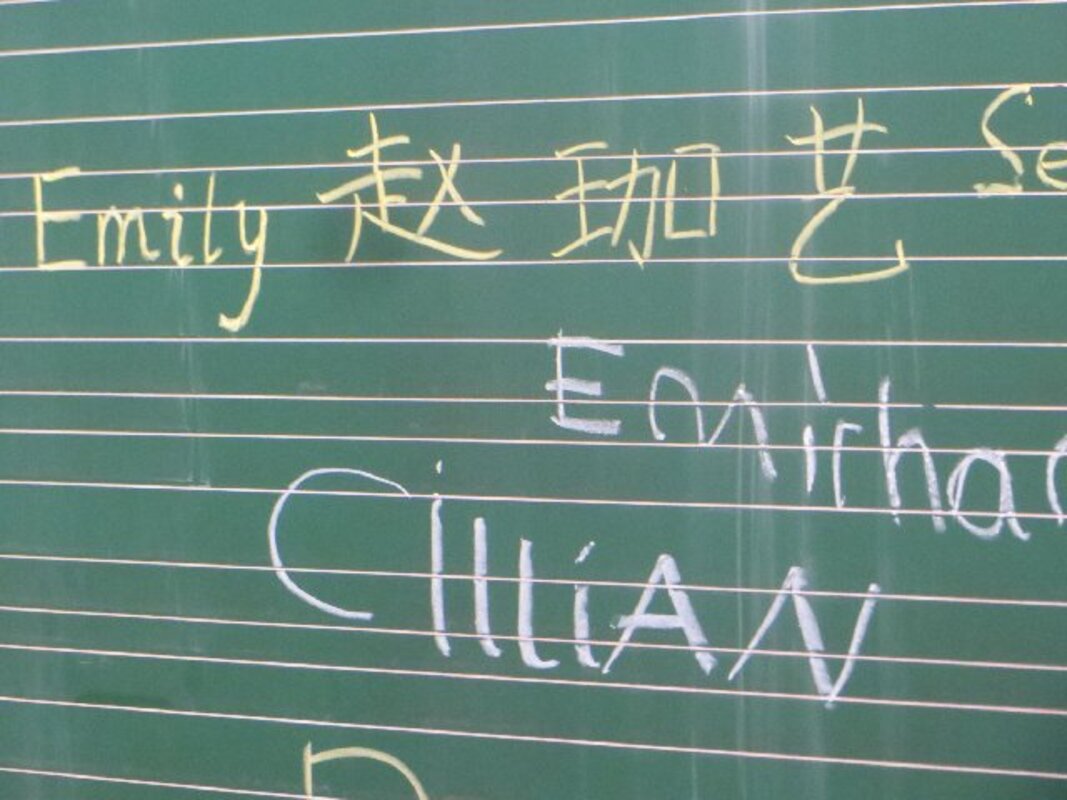 Emily 赵珈艺 Se
Emirhan
CilliAN